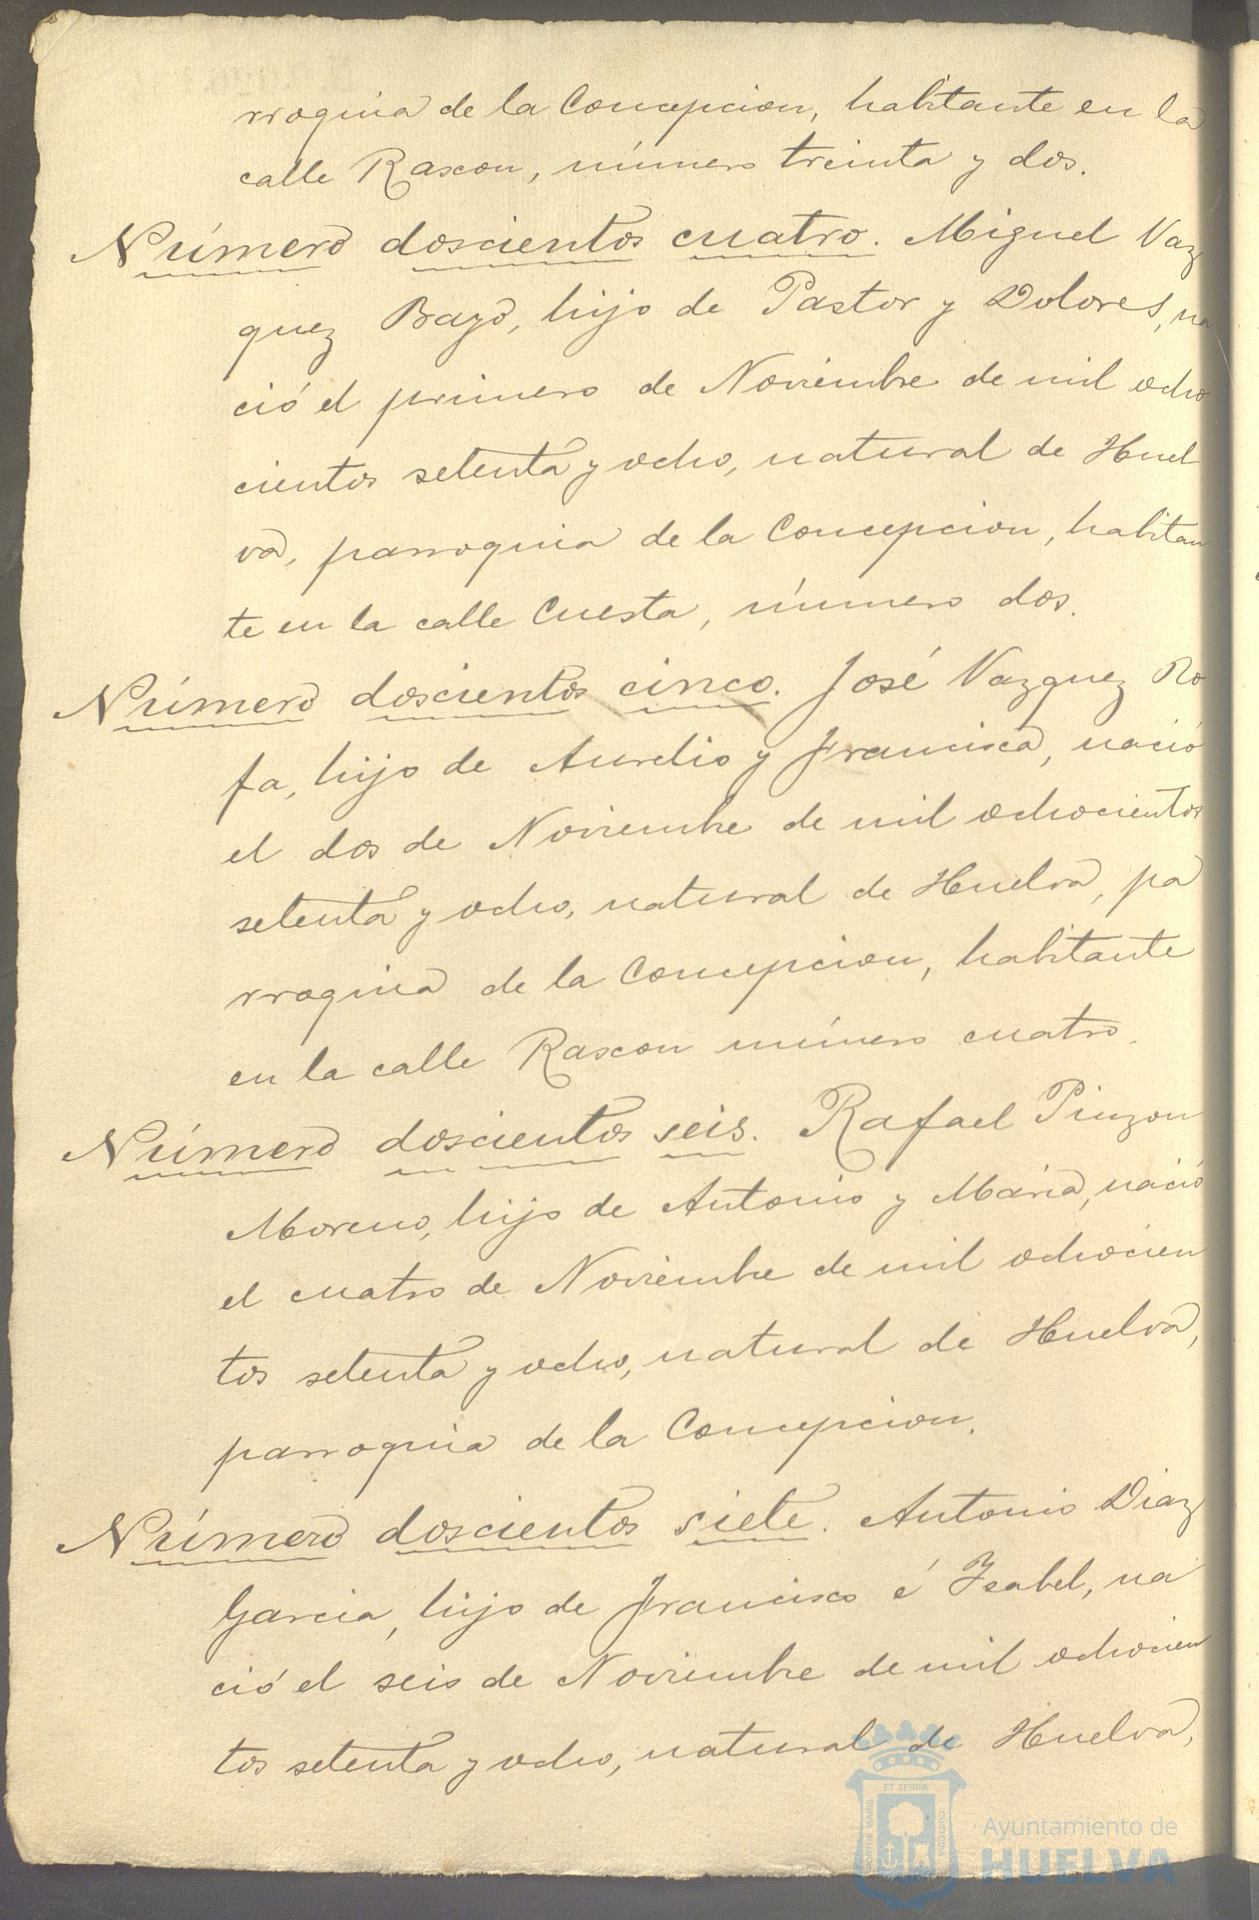 rroquia de la Concepcion, habitante en la
calle Rascon, número treinta y dos.
Número doscientos cuatro. Miguel Vaz
quez Bayo, hijo de Pastor y Dolores, na
ció el primero de Noviembre de mil ocho
cientos setenta y ocho, natural de Huel
va, parroquia de la Concepcion, habitan
te en la calle Cuesta, número dos.
Número doscientos cinco. José Vazquez Ro
fa, hijo de Aurelio y Francisca, nació
el dos de Noviembre de mil ochocientos
setenta y ocho, natural de Huelva, pa
rroquia de la Concepcion, habitante
en la calle Rascon número cuatro.
Número doscientos seis. Rafael Pinzon
Moreno, hijo de Antonio y Maria, nació
el cuatro de Noviembre de mil ochocien
tos setenta y ocho, natural de Huelva,
parroquia de la Concepcion.
Número doscientos siete. Antonio Diaz
Garcia, hijo de Francisco é Isabel, na
ció el seis de Noviembre de mil ochocien
tos setenta y ocho, natural de Huelva,
ET TERRÆ
PORTUS MARIS
CUSTODIA
Ayuntamiento de
HUELVA